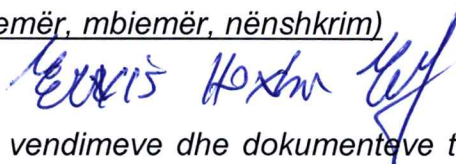 emër, mbiemër, nënshkrim)
Hoxha
vendimeve dhe dokumenteve t